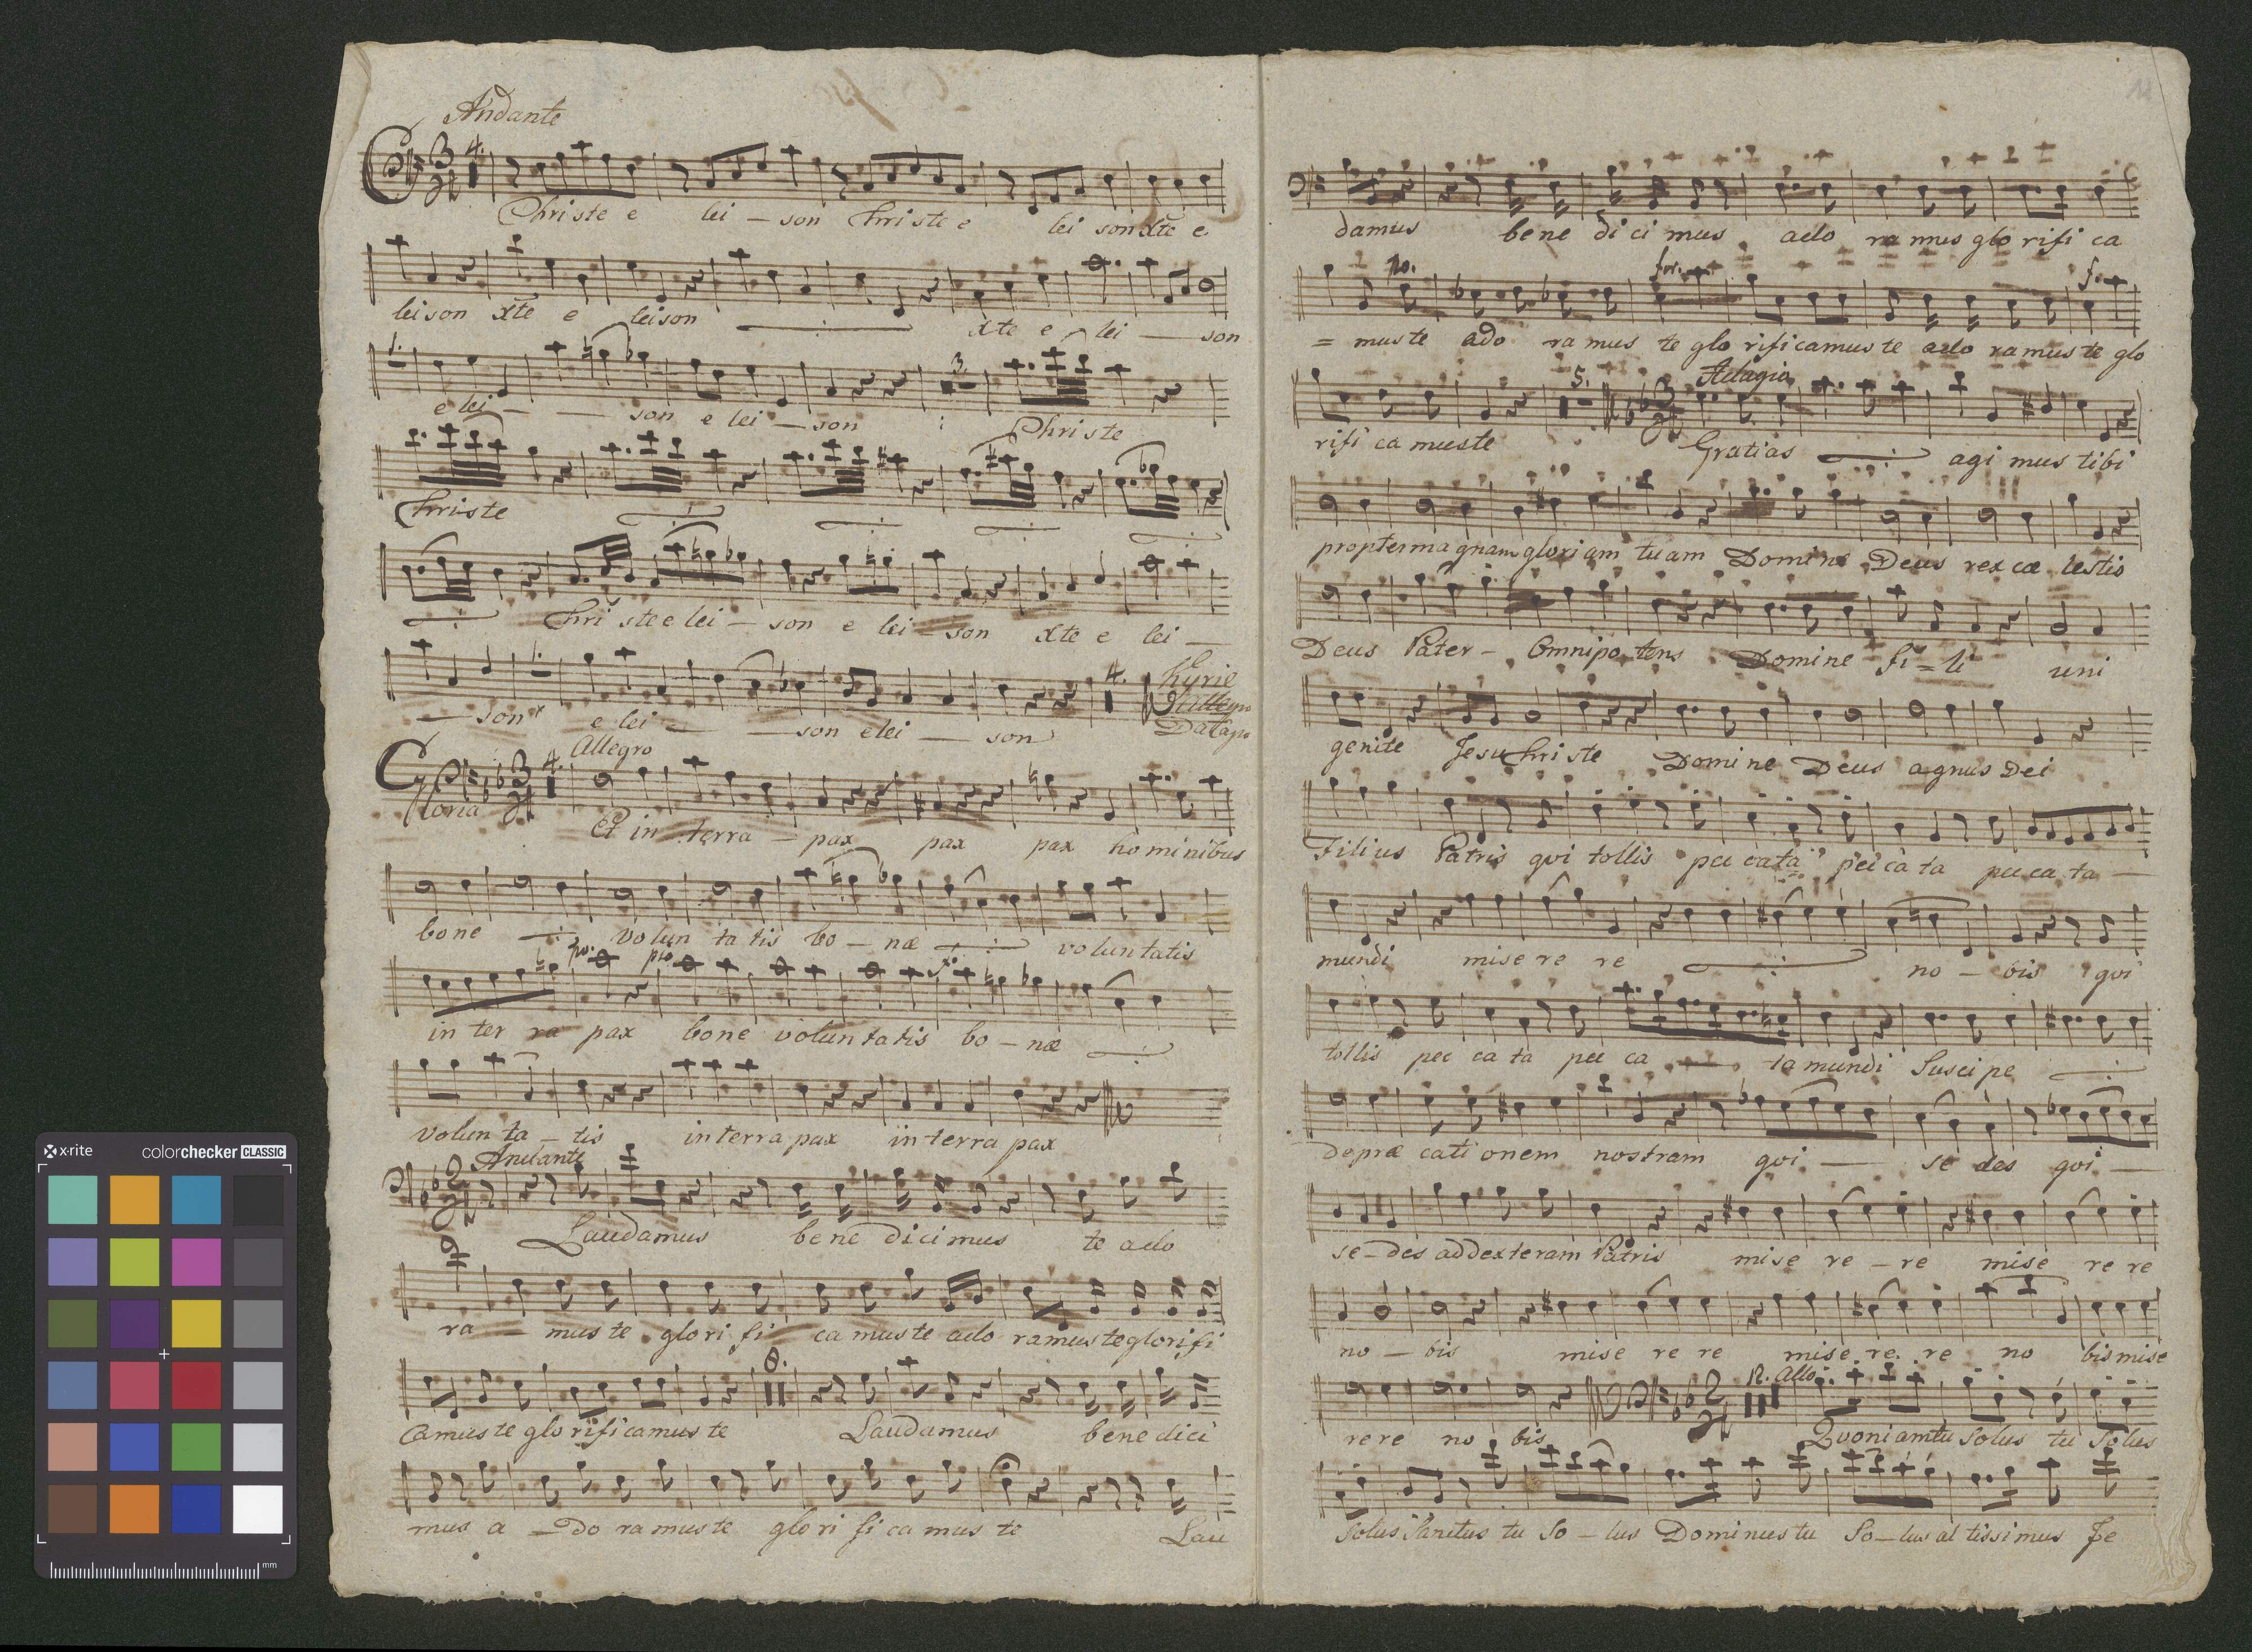 Andante
4.
Christe e lei - son Christe e lei son Xte e
leison xte e leison xte e lei - son
1. 3.
e lei - son e lei - son Christe
Christe
Christe e lei - son e lei - son Xte e lei -
1. 4.
- son e lei - son elei - son
Kyrie
Allegro
Da Capo
Allegro
4.
Gloria Et in terra - pax pax pax hominibus
bone volun ta tis bo - næ voluntatis
po. pio fo
in ter ra pax bone voluntatis bo - næ
volun ta - tis in terra pax in terra pax
Andante
Laudamus bene dicimus te ado
ra - mus te glo ri fi ca mus te ado ramus te glorifi
8.
camus te glorificamus te Laudamus bene dici
mus a - do ramus te glo ri fi ca mus te Lau
damus bene di ci mus ado ra mus glo rifi ca
po. for. f.
= mus te ado ra mus te glo rificamus te ado ramus te glo
5. Adagio
rifi ca mus te Gratias agi mus tibi
propter magnam gloriam tuam Domine Deus rex cæ lestis
Deus Pater - Omnipo tens Domine fi = li uni
genite Jesu Christe Domine Deus agnus Dei
Filius Patris qvi tollis pec cata pec ca ta pec ca ta -
mundi mise re re no - bis qvi
tollis pec ca ta pec ca - ta mundi Suscipe
depræ cati onem nostram qvi - se des qvi -
se - des ad dexteram Patris mise re - re mise re re
no - bis mise re re mise re re no bis mise
12. Allo
re re no bis Qvoniam tu solus tu solus
solus Sanctus tu so - lus Dominus tu So - lus al tissimus Je
x·rite
colorchecker CLASSIC
mm